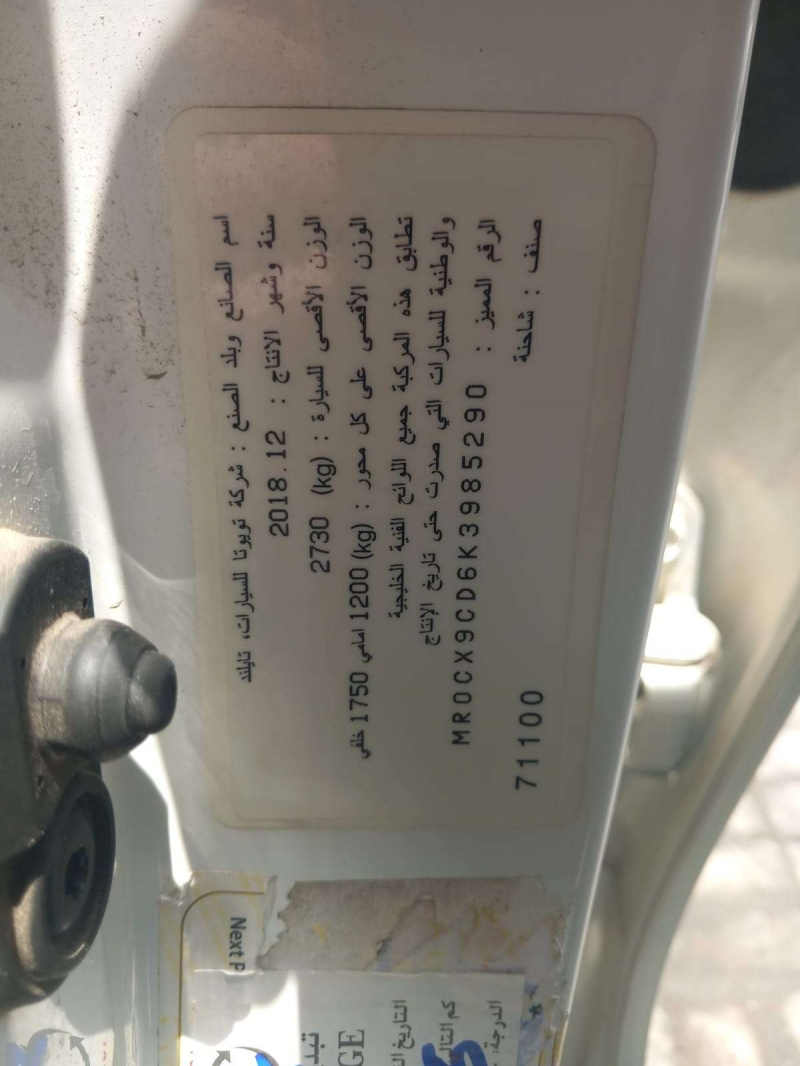 اسم الصانع وبلد الصنع : شركة تويوتا للسيارات، تايلند
سنة وشهر الانتاج : 2018.12
الوزن الأقصى للسيارة : (kg) 2730
الوزن الأقصى على كل محور : (kg) 1200 امامي 1750 خلفي
تطابق هذه المركبة جميع اللوائح الفنية الخليجية
والوطنية للسيارات التي صدرت حتى تاريخ الإنتاج
الرقم المميز : MR0CX9CD6K3985290
صنف : شاحنة
71100
Next
GE
التاريخ
كم
الدرجة: